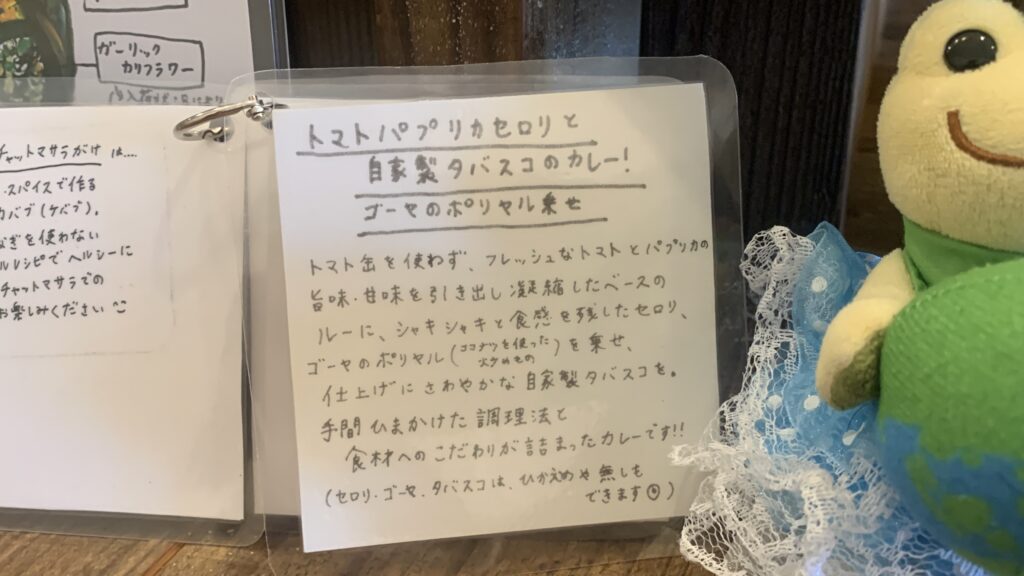 ガーリック
カリフラワー
チャットマサラがけ は....
・スパイスで作る
カバブ(ケバブ)。
なぎを使わない
ルレシピでヘルシーに
チャットマサラでの
お楽しみください
トマトパプリカセロリと
自家製タバスコのカレー!
ゴーヤのポリヤル乗せ
トマト缶を使わず、フレッシュなトマトとパプリカの
旨味・甘味を引き出し凝縮したベースの
ルーに、シャキシャキと食感を残したセロリ、
ゴーヤのポリヤル(ココナツを使った炒めもの)を乗せ、
仕上げにさわやかな自家製タバスコを。
手間ひまかけた調理法と
食材へのこだわりが詰まったカレーです!!
(セロリ・ゴーヤ、タバスコは、ひかえめや無しも
できます)